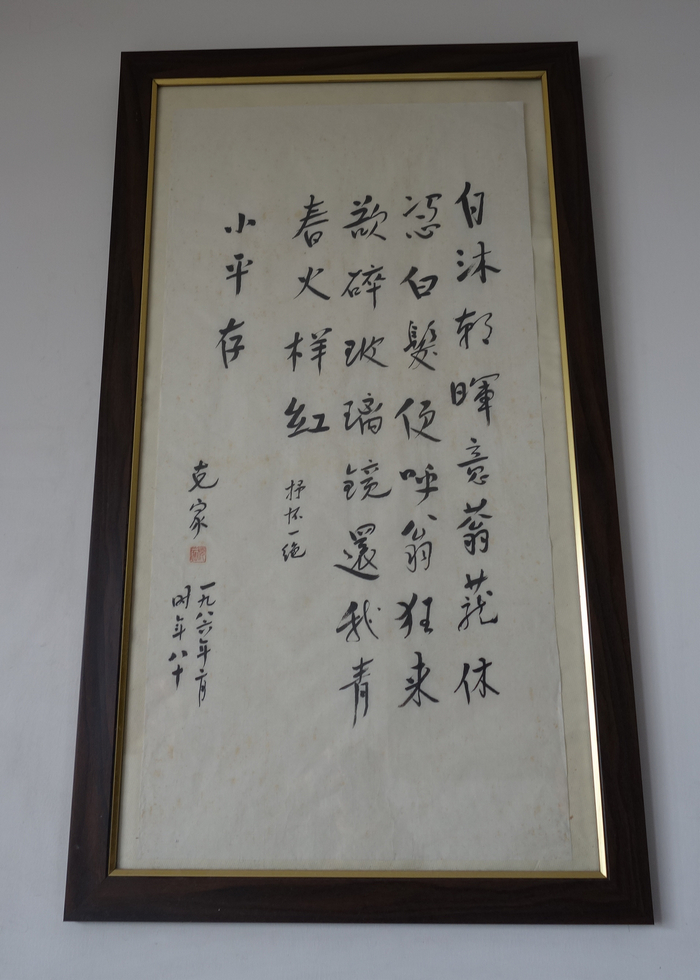 自沐朝暉意蓊茏休
憑白髮便呼翁狂来
欲碎玻璃鏡還我青
春火样红
抒怀一绝
小平存
克家
一九八六年二月
时年八十